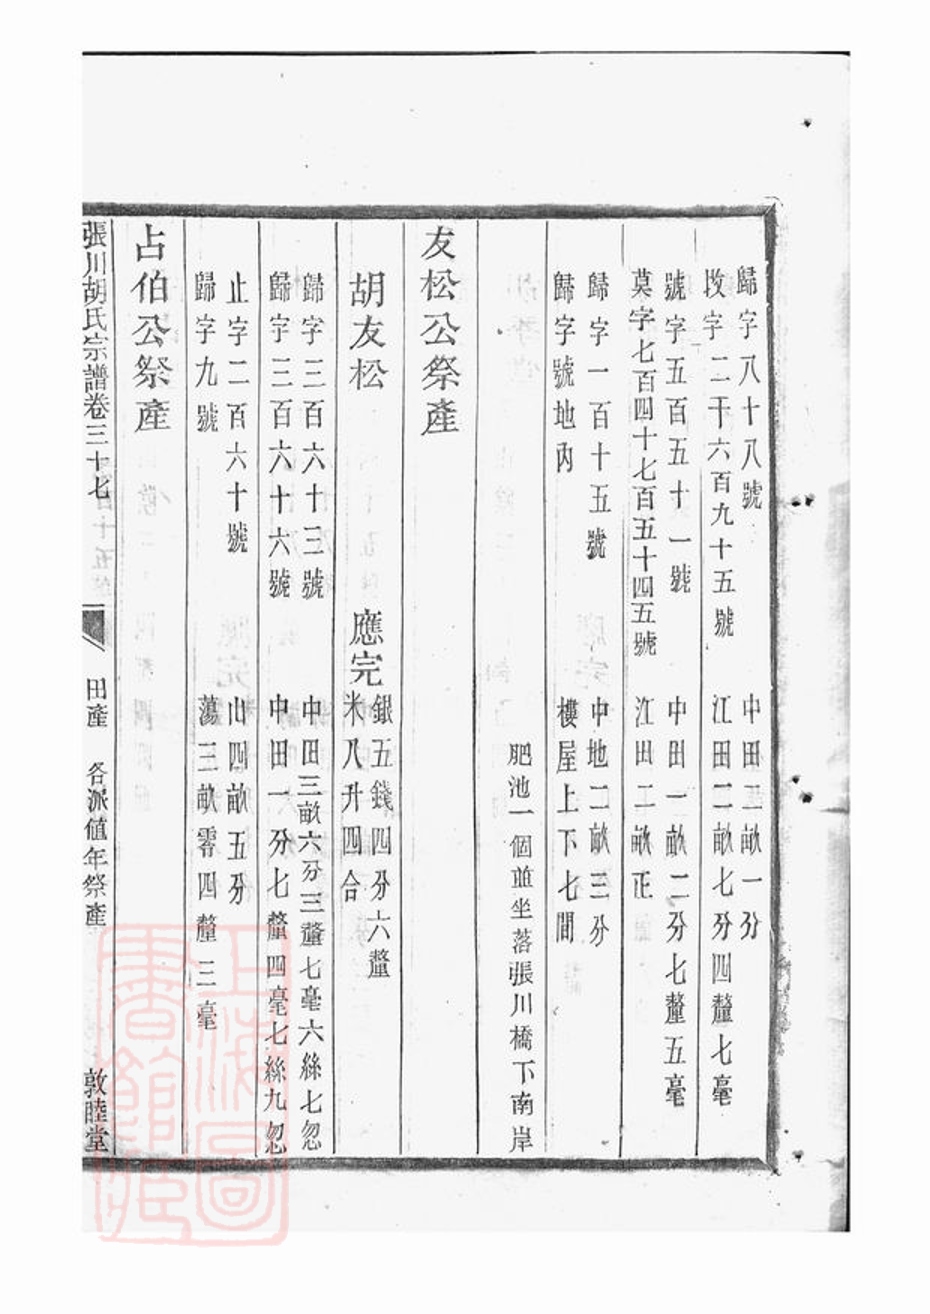 歸字八十八號　中田二畝一分
坆字二千六百九十五號　江田二畝七分四釐七毫
號字五百五十一號　中田一畝二分七釐五毫
莫字七百四十七百五十四五號　江田二畝正
歸字一百十五號　中地二畝三分
歸字號地內　樓屋上下七間
肥池一個並坐落張川橋下南岸
友松公祭產
胡友松　應完　銀五錢四分六釐
米八升四合
歸字三百六十三號　中田三畝六分三釐七毫六絲七忽
歸字三百六十六號　中田一分七釐四毫七絲九忽
止字二百六十號　山四畝五分
歸字九號　蕩三畝零四釐三毫
占伯公祭產
張川胡氏宗譜卷三十七　田產　各派值年祭產　敦睦堂
上海圖書館藏